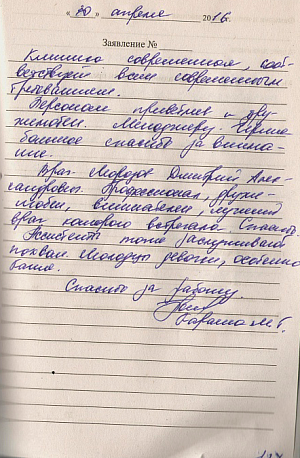 « 20 » апреля 2016г.
Заявление №
Клиника современная, соот-
ветствует всем современным
требованиям.
Персонал приветлив и дру-
желюбен. Менеджеру Ирине
большое спасибо за внима-
ние.
Врач Морозов Дмитрий Алек-
сандрович. Профессионал, друже-
любен, внимателен, лучший
врач которого встречала. Спасибо.
Ассистенты тоже заслуживают
похвал. Молодцы девочки, особенно
Спасибо за работу.